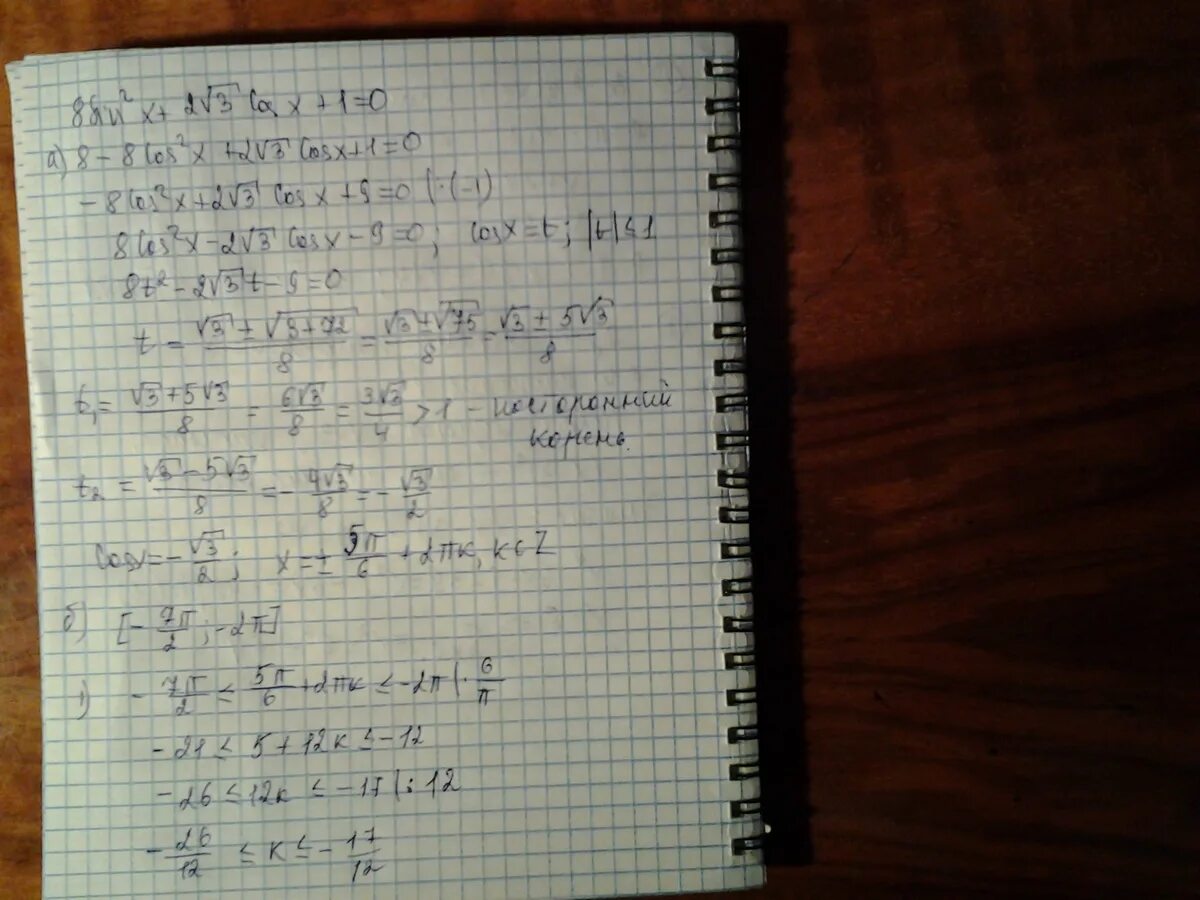 8sin²x + 2√3 cos x + 1 = 0
а) 8 - 8cos²x + 2√3 cosx + 1 = 0
- 8cos²x + 2√3 cos x + 9 = 0 | ·(-1)
8cos²x - 2√3 cosx - 9 = 0; cosx = t; |t| ≤ 1
8t² - 2√3 t - 9 = 0
t = (√3 ± √(3+72))/8 = (√3 ± √75)/8 = (√3 ± 5√3)/8
t₁ = (√3 + 5√3)/8 = 6√3/8 = 3√3/4 > 1 - посторонний
корень.
t₂ = (√3 - 5√3)/8 = - 4√3/8 = - √3/2
cosx = - √3/2; x = ± 5π/6 + 2πк, к ∈ Z
б) [- 7π/2; -2π]
1) - 7π/2 ≤ 5π/6 + 2πк ≤ -2π | · 6/π
- 21 ≤ 5 + 12к ≤ -12
- 26 ≤ 12к ≤ -17 | : 12
- 26/12 ≤ к ≤ - 17/12